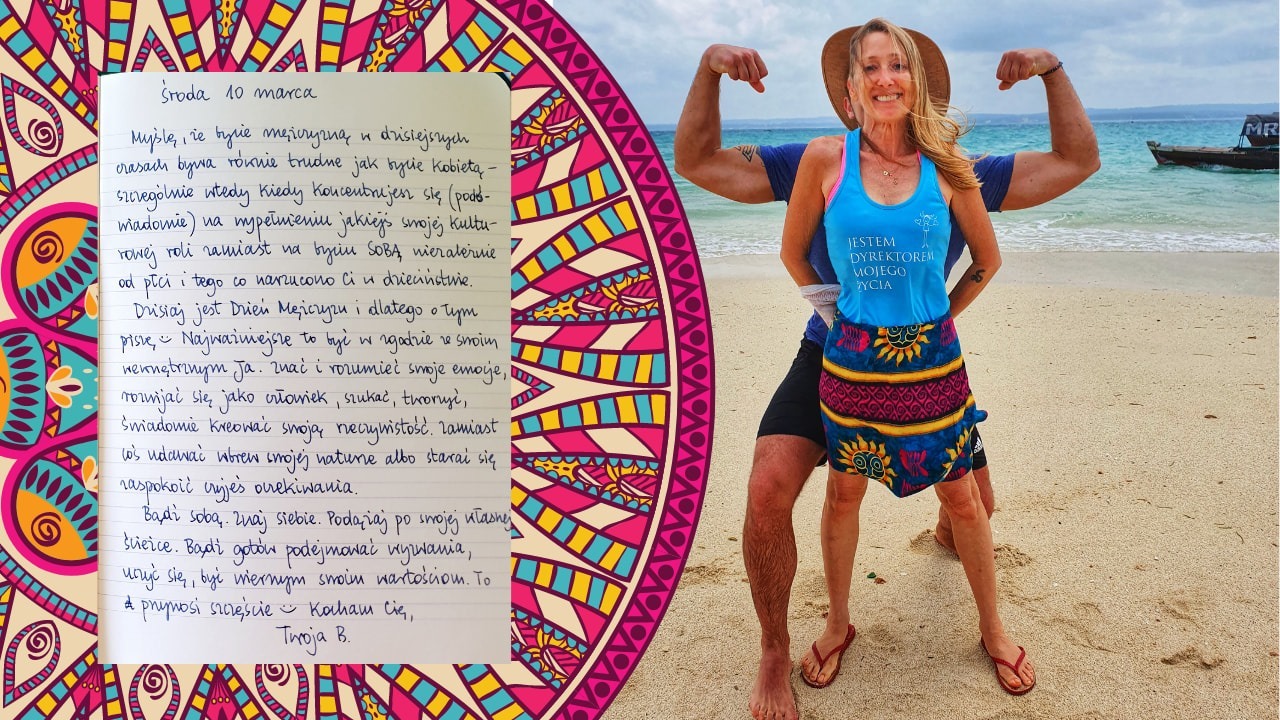 środa 10 marca
Myślę, że bycie mężczyzną w dzisiejszych
czasach bywa równie trudne jak bycie kobietą –
szczególnie wtedy kiedy koncentrujesz się (podś-
wiadomie) na wypełnieniu jakiejś swojej kultu-
rowej roli zamiast na byciu SOBĄ niezależnie
od płci i tego co narzucono Ci w dzieciństwie.
Dzisiaj jest Dzień Mężczyzn i dlatego o tym
piszę. Najważniejsze to być w zgodzie ze swoim
wewnętrznym Ja. Znać i rozumieć swoje emocje,
rozwijać się jako człowiek, szukać, tworzyć,
świadomie kreować swoją rzeczywistość. Zamiast
coś udawać wbrew swojej naturze albo starać się
zaspokoić czyjeś oczekiwania.
Bądź sobą. Znaj siebie. Podążaj po swojej własnej
ścieżce. Bądź gotów podejmować wyzwania,
uczyć się, być wiernym swoim wartościom. To
przynosi szczęście Kocham Cię,
Twoja B.
JESTEM
DYREKTOREM
MOJEGO
ŻYCIA
MR